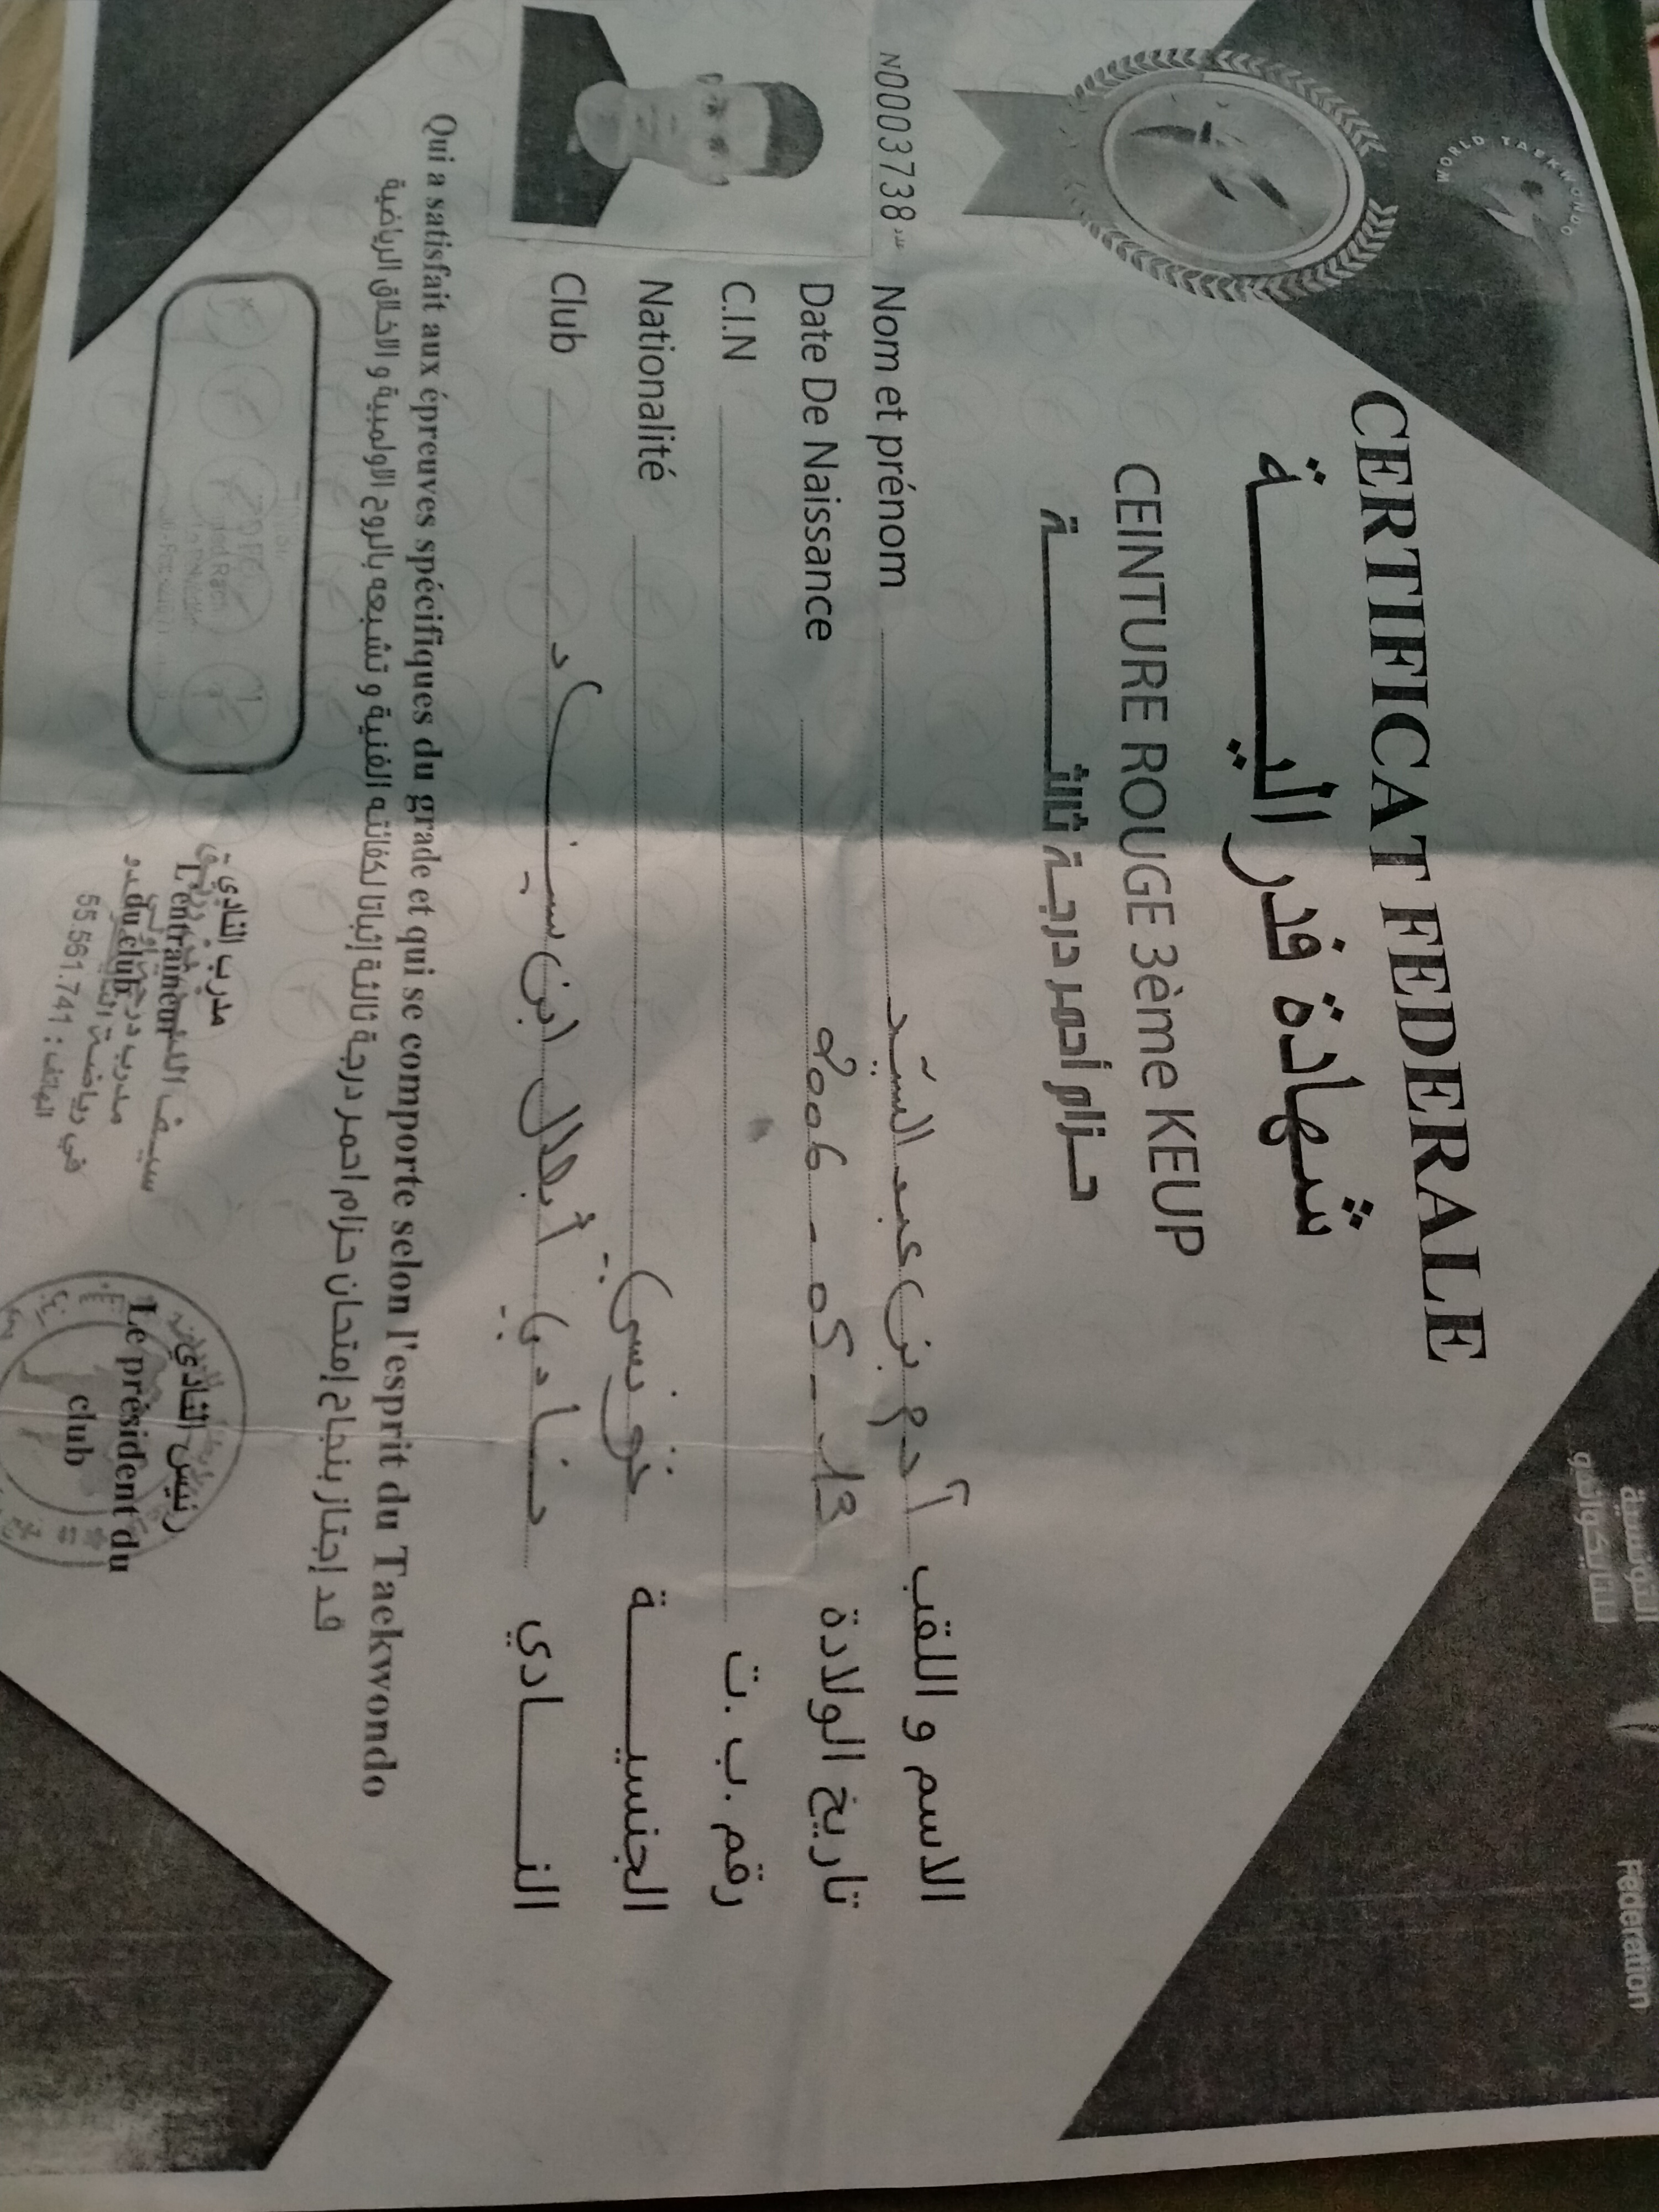 WORLD TAEKWONDO
التونسية
للتايكواندو
Federation
CERTIFICAT FEDERALE
شهادة فدراليــــة
CEINTURE ROUGE 3ème KEUP
حـزام أحمر درجـة ثالثــــة
N0003738 عدد
Nom et prénom آدم بن عبد السيّد الاسم و اللقب
Date De Naissance 2006 - 05 - 13 تاريخ الولادة
C.I.N رقم .ب .ت
Nationalité تونسي الجنسيــــة
Club نادي أبطال ابن سينا النــــادي
Qui a satisfait aux épreuves spécifiques du grade et qui se comporte selon l'esprit du Taekwondo
قد إجتاز بنجاح إمتحان حزام احمر درجة ثالثة إثباتا لكفائته الفنية و تشبعه بالروح الاولمبية و الاخلاق الرياضية
مدرب النادي
L'entraineur
du club
سيف
مدرب درجة
في رياضة
الهاتف : 55.561.741
رئيس النادي
Le président du
club